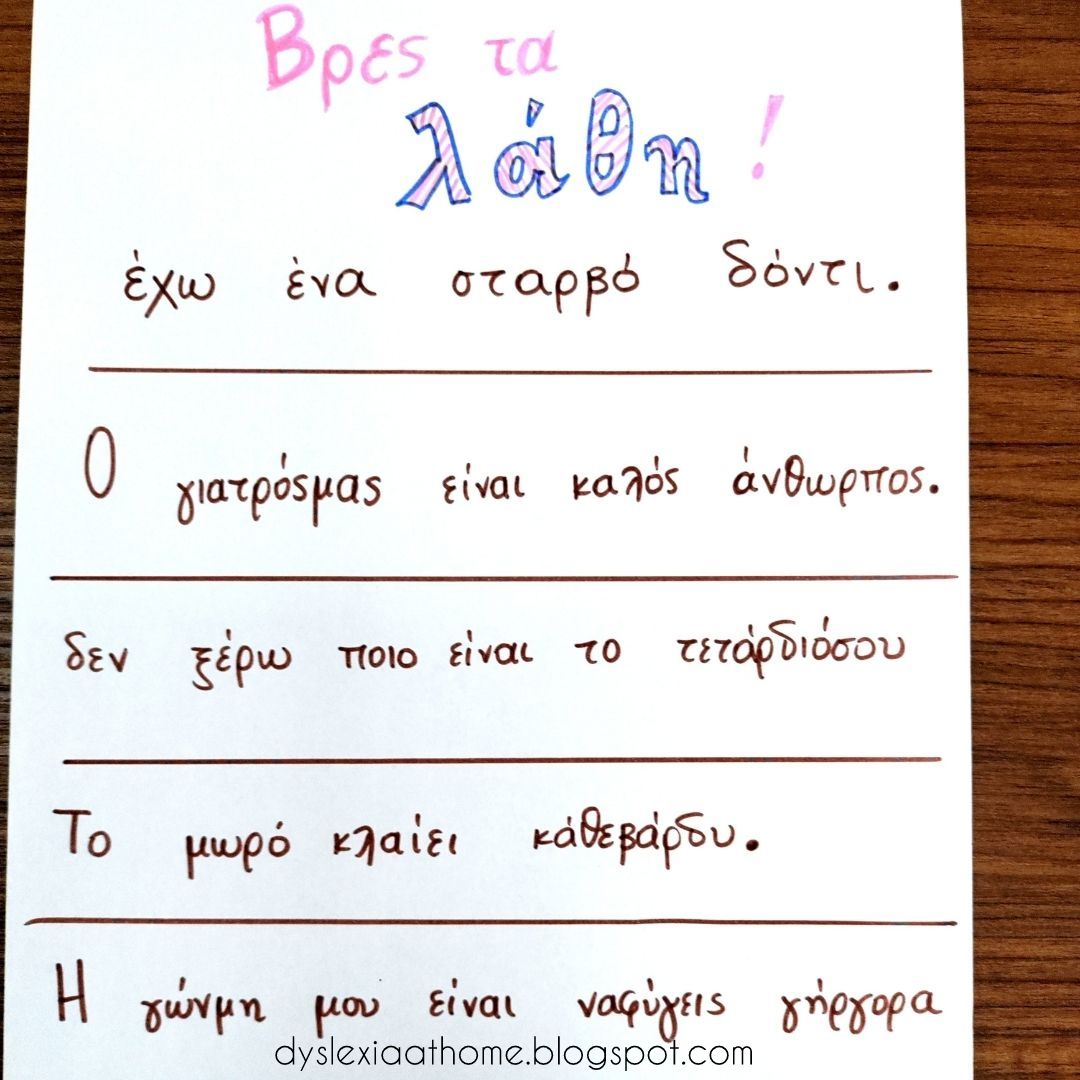 Βρες τα
λάθη!
έχω ένα σταρβό δόντι.
Ο γιατρόςμας είναι καλός άνθωρπος.
δεν ξέρω ποιο είναι το τετάρδιόσου
Το μωρό κλαίει κάθεβάρδυ.
Η γώνμη μου είναι ναφύγεις γήργορα
dyslexiaathome.blogspot.com